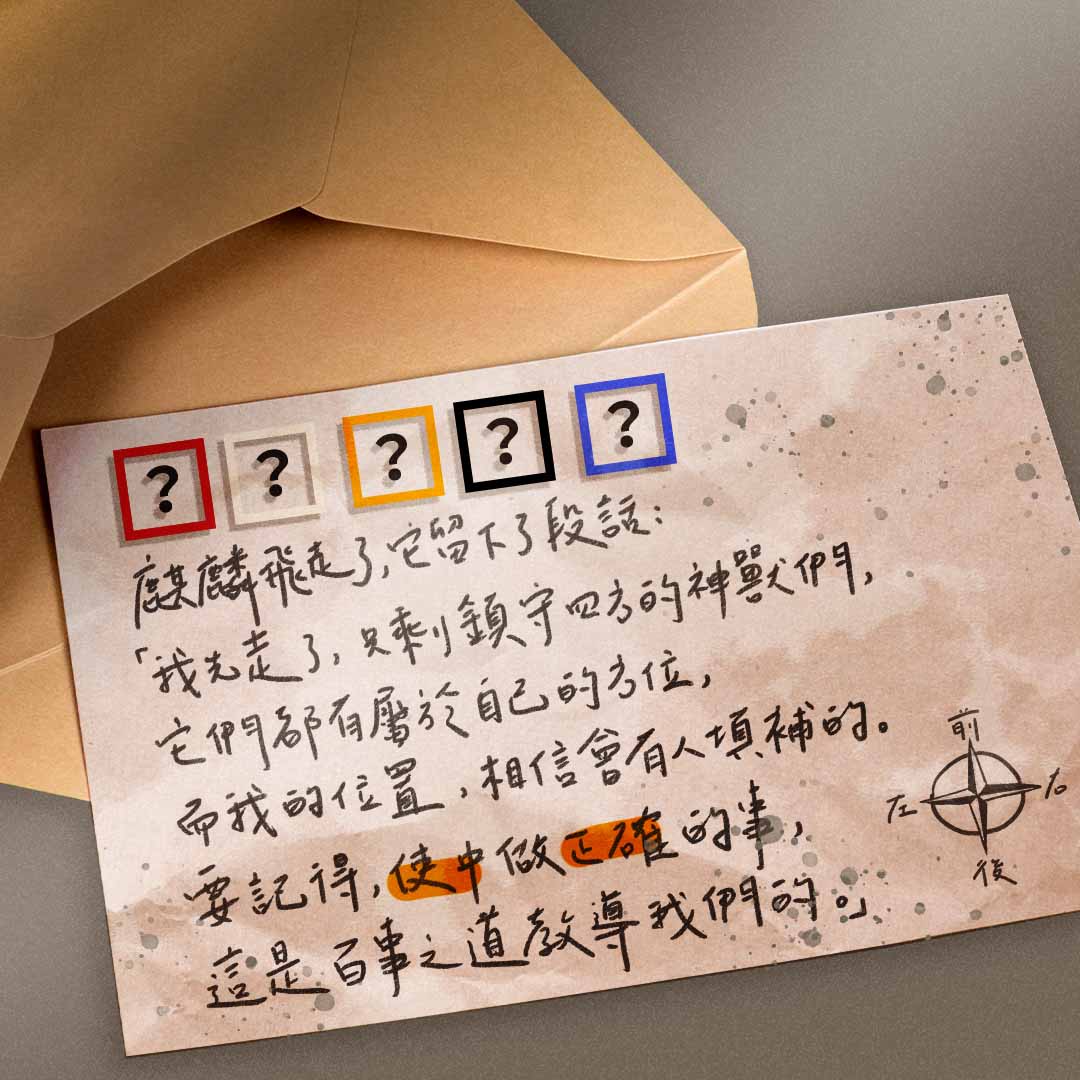 ? ? ? ? ?
麒麟飛走了,它留下了段話:
「我先走了,只剩鎮守四方的神獸們,
它們都有屬於自己的方位,
而我的位置,相信會有人填補的。
要記得,使中做正確的事,
這是百事之道教導我們的。」
前
左 右
後